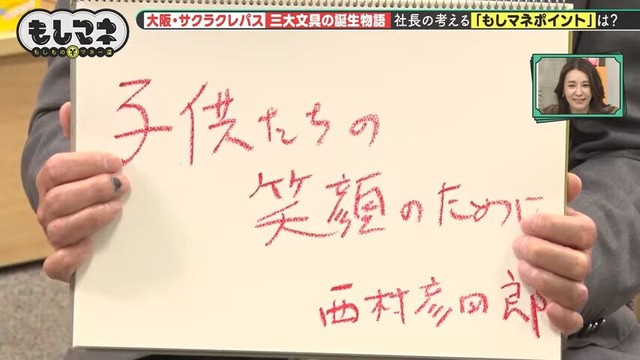 もしマネ
もしものマネー道
大阪・サクラクレパス 三大文具の誕生物語 社長の考える「もしマネポイント」は?
子供たちの
笑顔のために
西村彦四郎